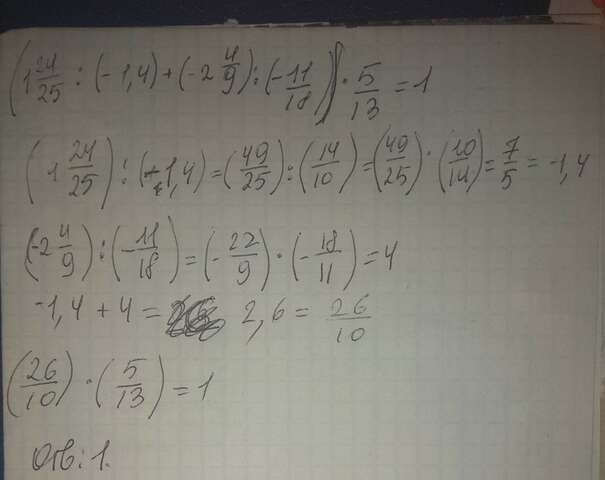 (1 24/25 : (-1,4) + (-2 4/9) : (-11/18)) · 5/13 = 1
(1 24/25) : (-1,4) = (49/25) : (14/10) = (49/25) · (10/14) = 7/5 = -1,4
(-2 4/9) : (-11/18) = (-22/9) · (-18/11) = 4
-1,4 + 4 = 2,6 = 26/10
(26/10) · (5/13) = 1
Отв: 1.